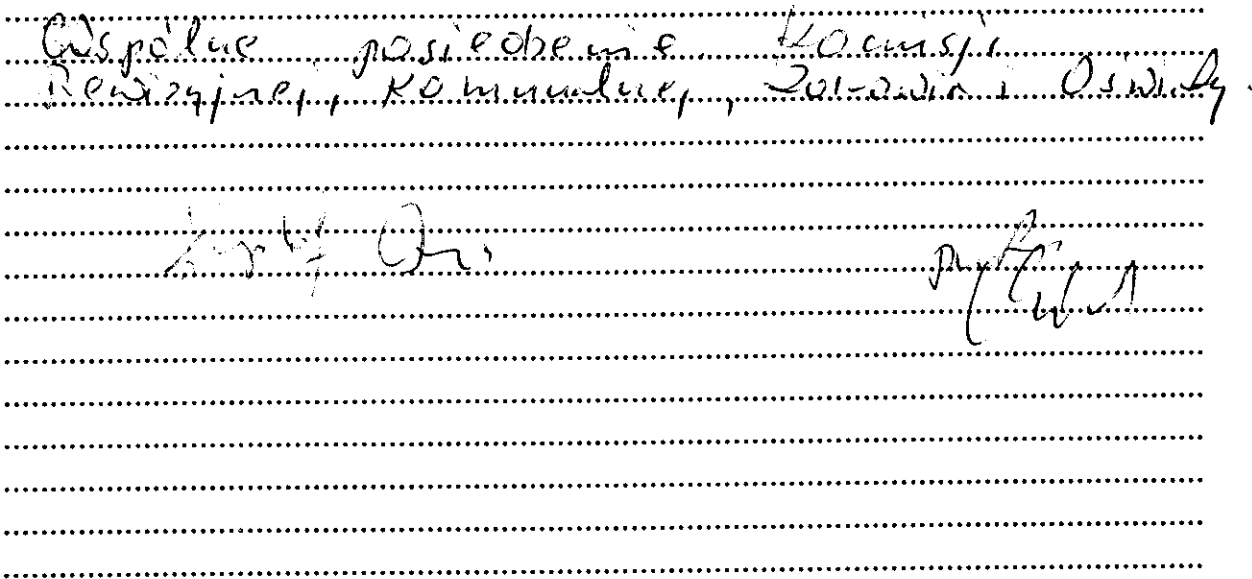 Wspólne posiedzenie Komisji
Rewizyjnej, Komunalnej, Zdrowia i Oświaty.